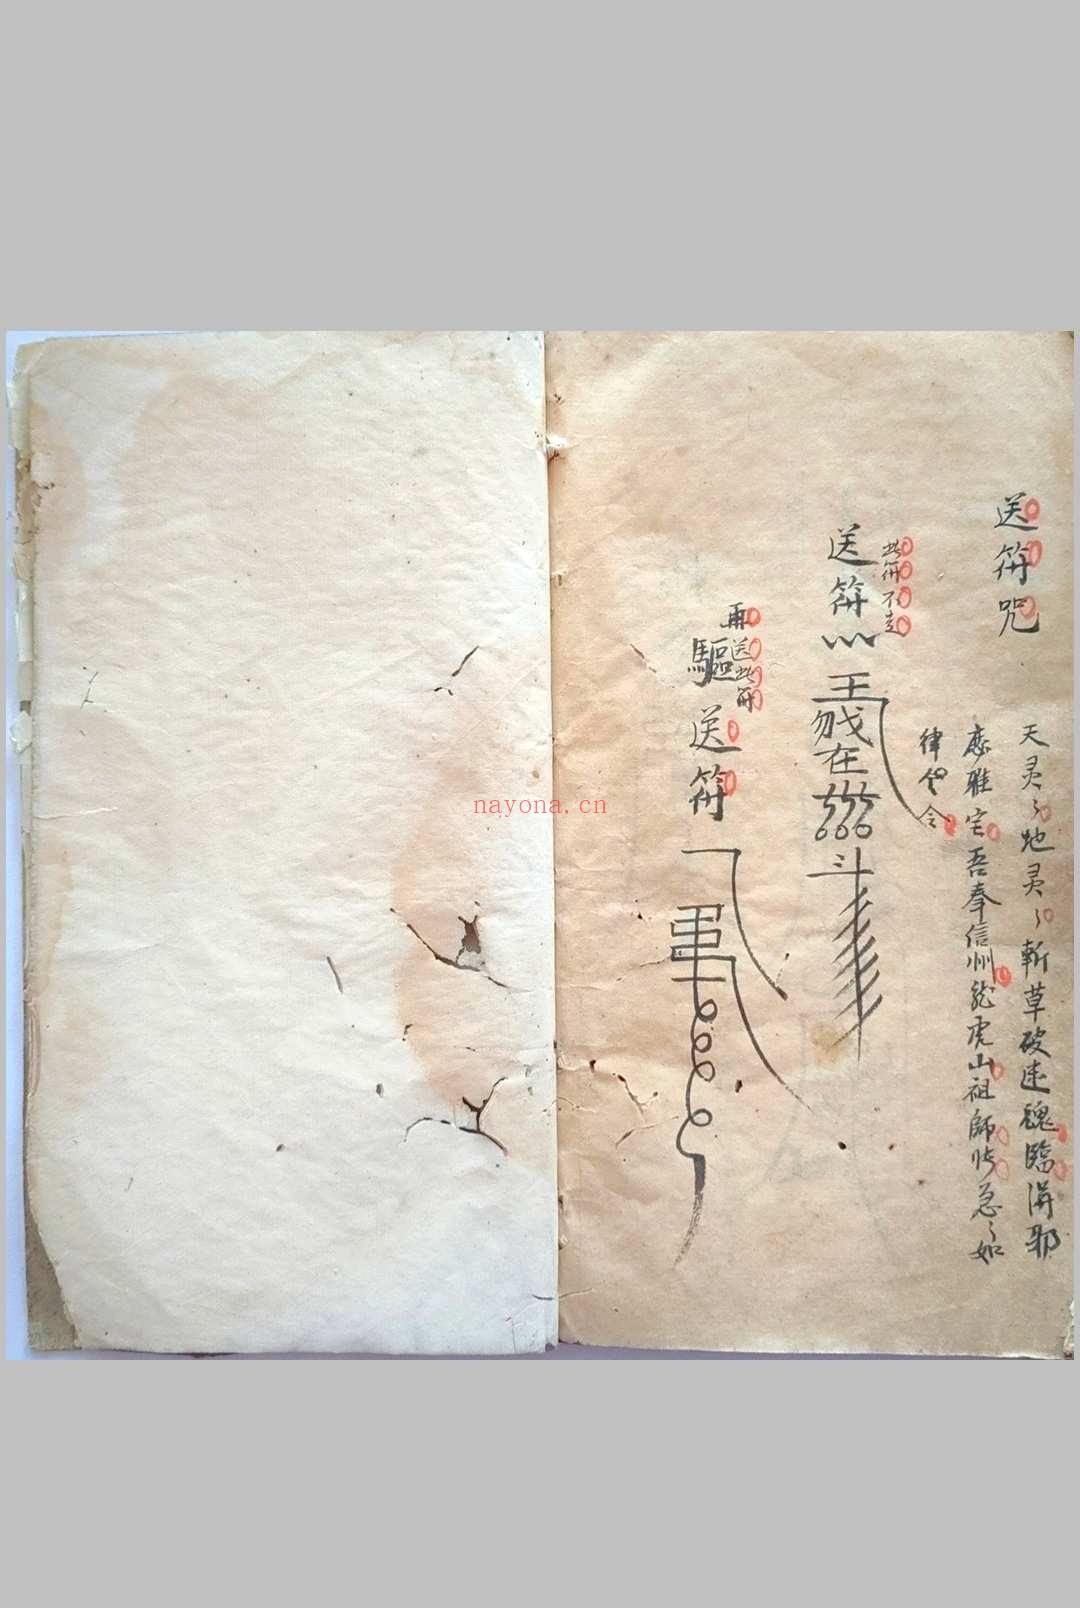 送符咒
天灵〻地灵〻斬草破迷魂臨溝邪
應雅宅吾奉信州龍虎山祖師 急〻如
律令
此符不走
送符
再送此符
驅送符
nayona.cn